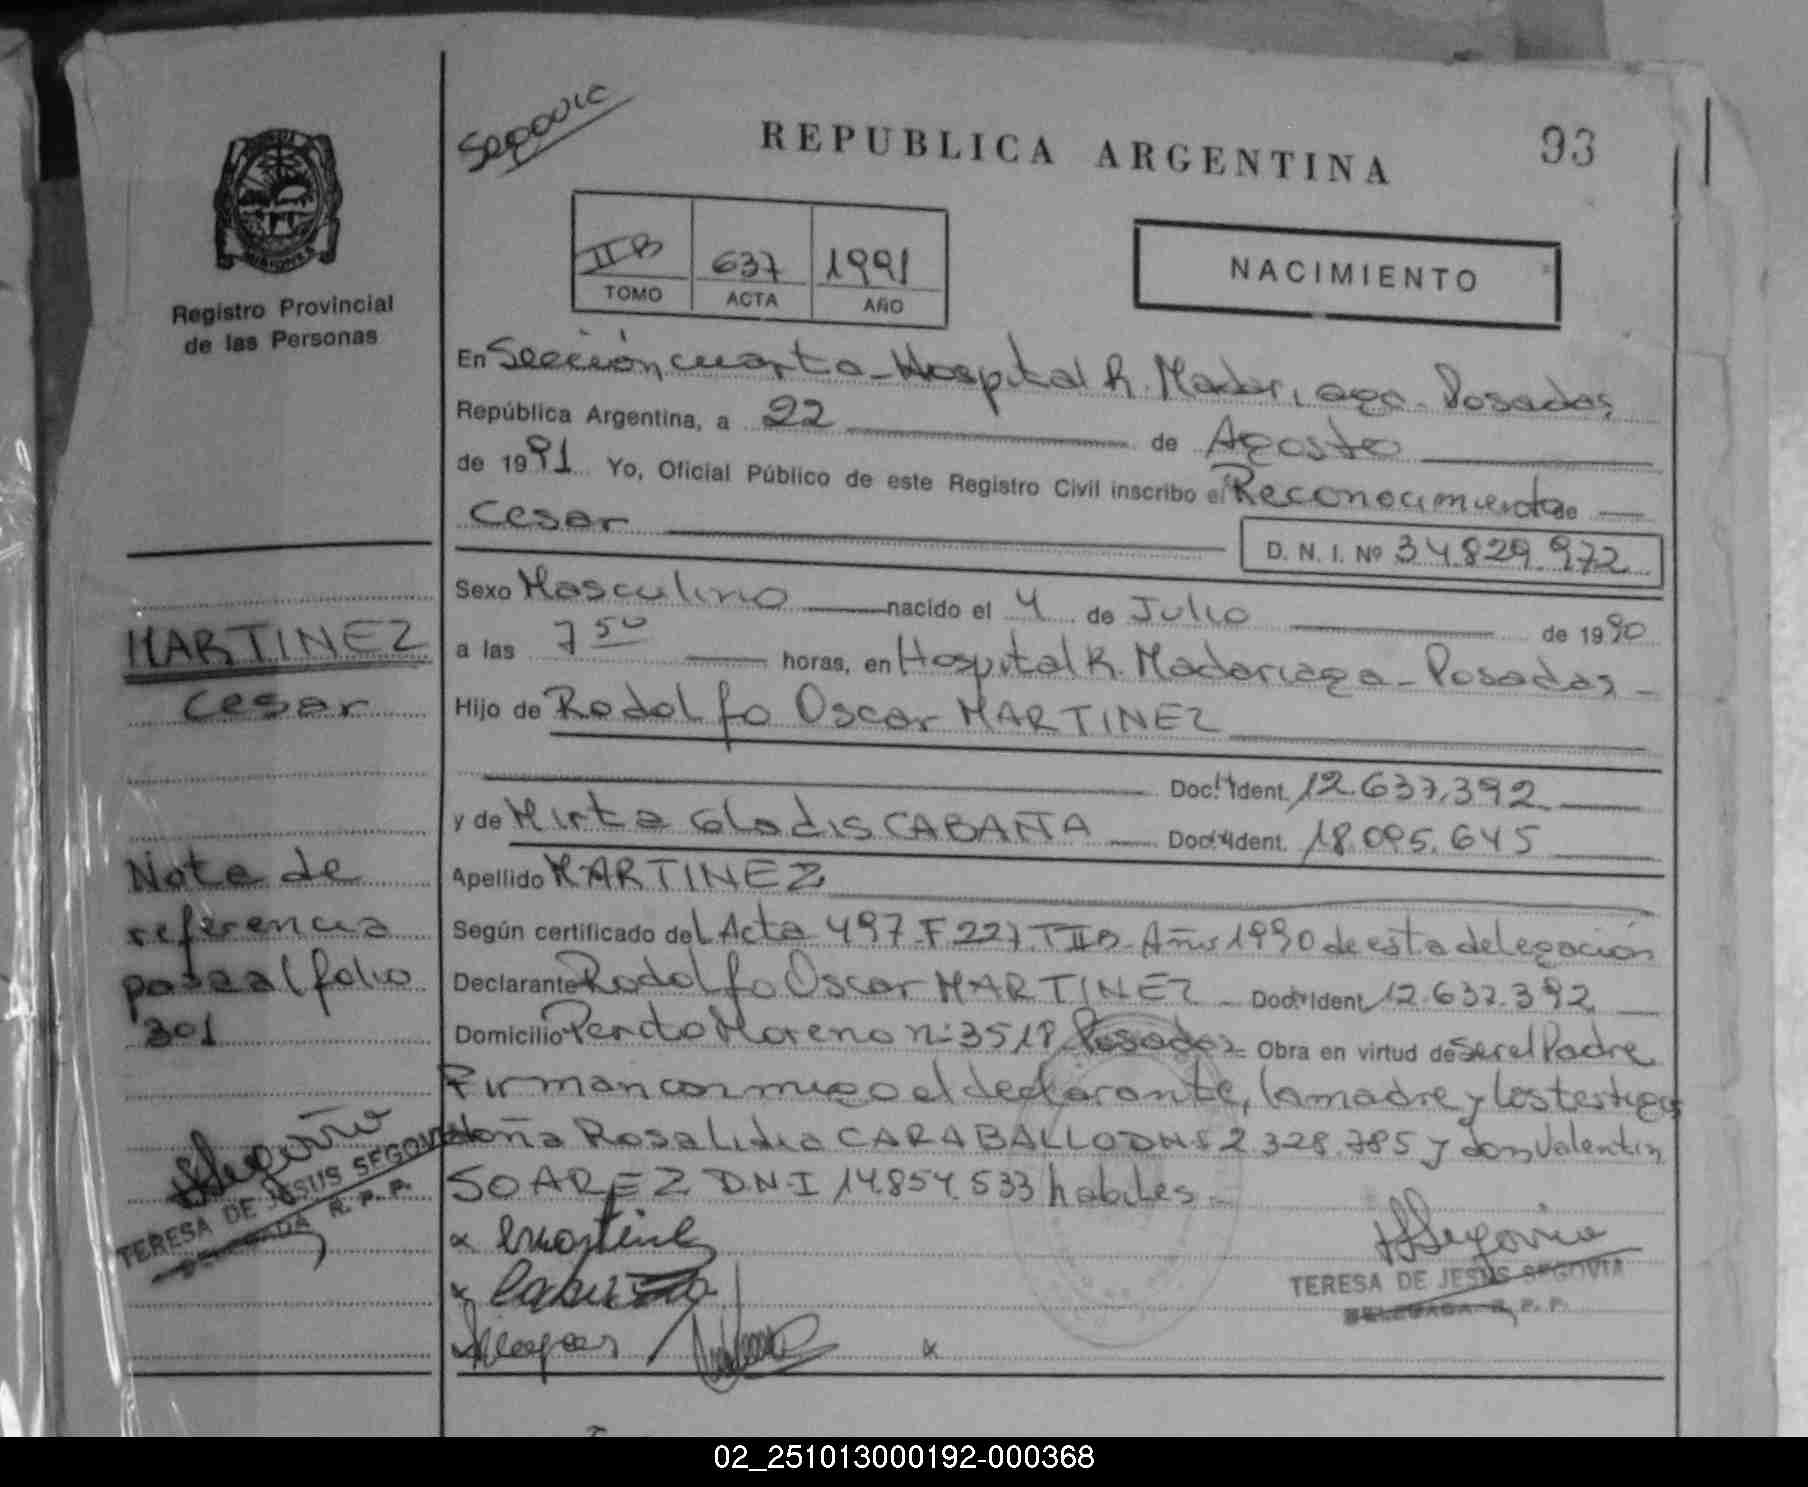 Segovia
REPUBLICA ARGENTINA
93
IIB 637 1991
TOMO ACTA AÑO
NACIMIENTO
Registro Provincial
de las Personas
En Sección cuarta - Hospital R. Madariaga - Posadas
República Argentina, a 22 de Agosto
de 1991 Yo, Oficial Público de este Registro Civil inscribo el Reconocimiento de
Cesar
D. N. I. Nº 34.829.972
Sexo Masculino nacido el 4 de Julio de 1990
a las 7 50 horas, en Hospital R. Madariaga - Posadas -
Hijo de Rodolfo Oscar MARTINEZ
Doc. Ident. 12.637.392
y de Mirta Gladis CABAÑA Doc. Ident. 18.095.645
Apellido MARTINEZ
Según certificado del Acta 497 F 227 T IIB Año 1990 de esta delegación
Declarante Rodolfo Oscar MARTINEZ - Doc. Ident. 12.637.392
Domicilio Perito Moreno n: 3518 Posadas - Obra en virtud de ser el Padre
Firman conmigo el declarante, la madre y los testigos
doña Rosalidia CARABALLO DNI 2.328.785 y don Valentin
SOAREZ DNI 14.854.533 habiles -
MARTINEZ
Cesar
Nota de
referencia
pasa al folio
301
TERESA DE JESUS SEGOVIA
DELEGADA R. P. P.
TERESA DE JESUS SEGOVIA
DELEGADA R. P. P.
02_251013000192-000368